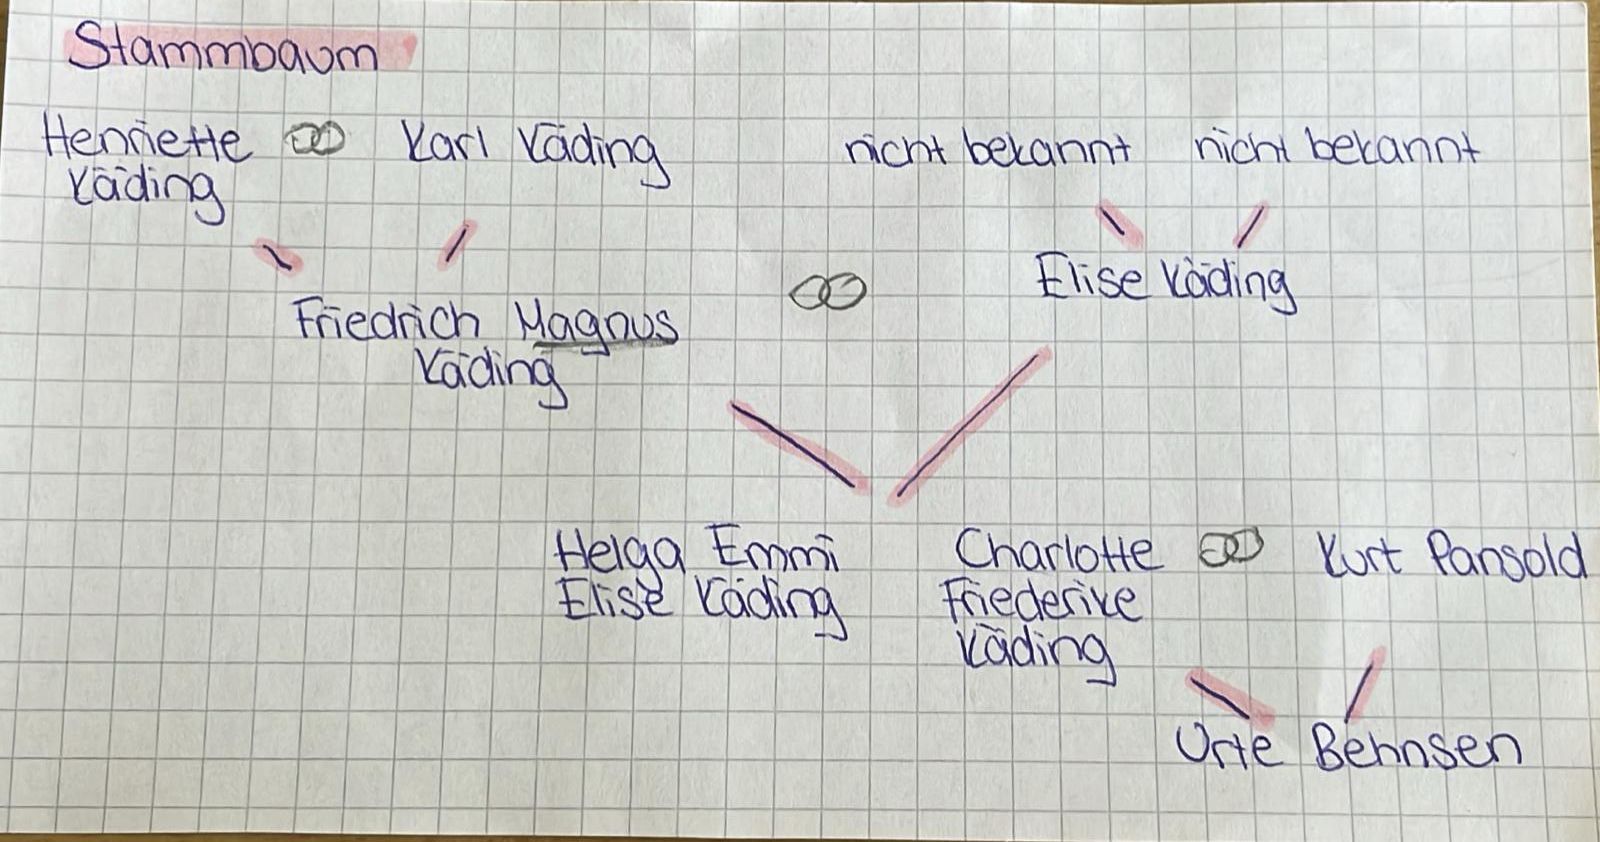 Stammbaum
Henriette ⚭ Karl Käding nicht bekannt nicht bekannt
Käding
Elise Käding
Friedrich Magnus ⚭
Käding
Helga Emmi Charlotte ⚭ Kurt Pansold
Elise Käding Friederike
Käding
Urte Behnsen